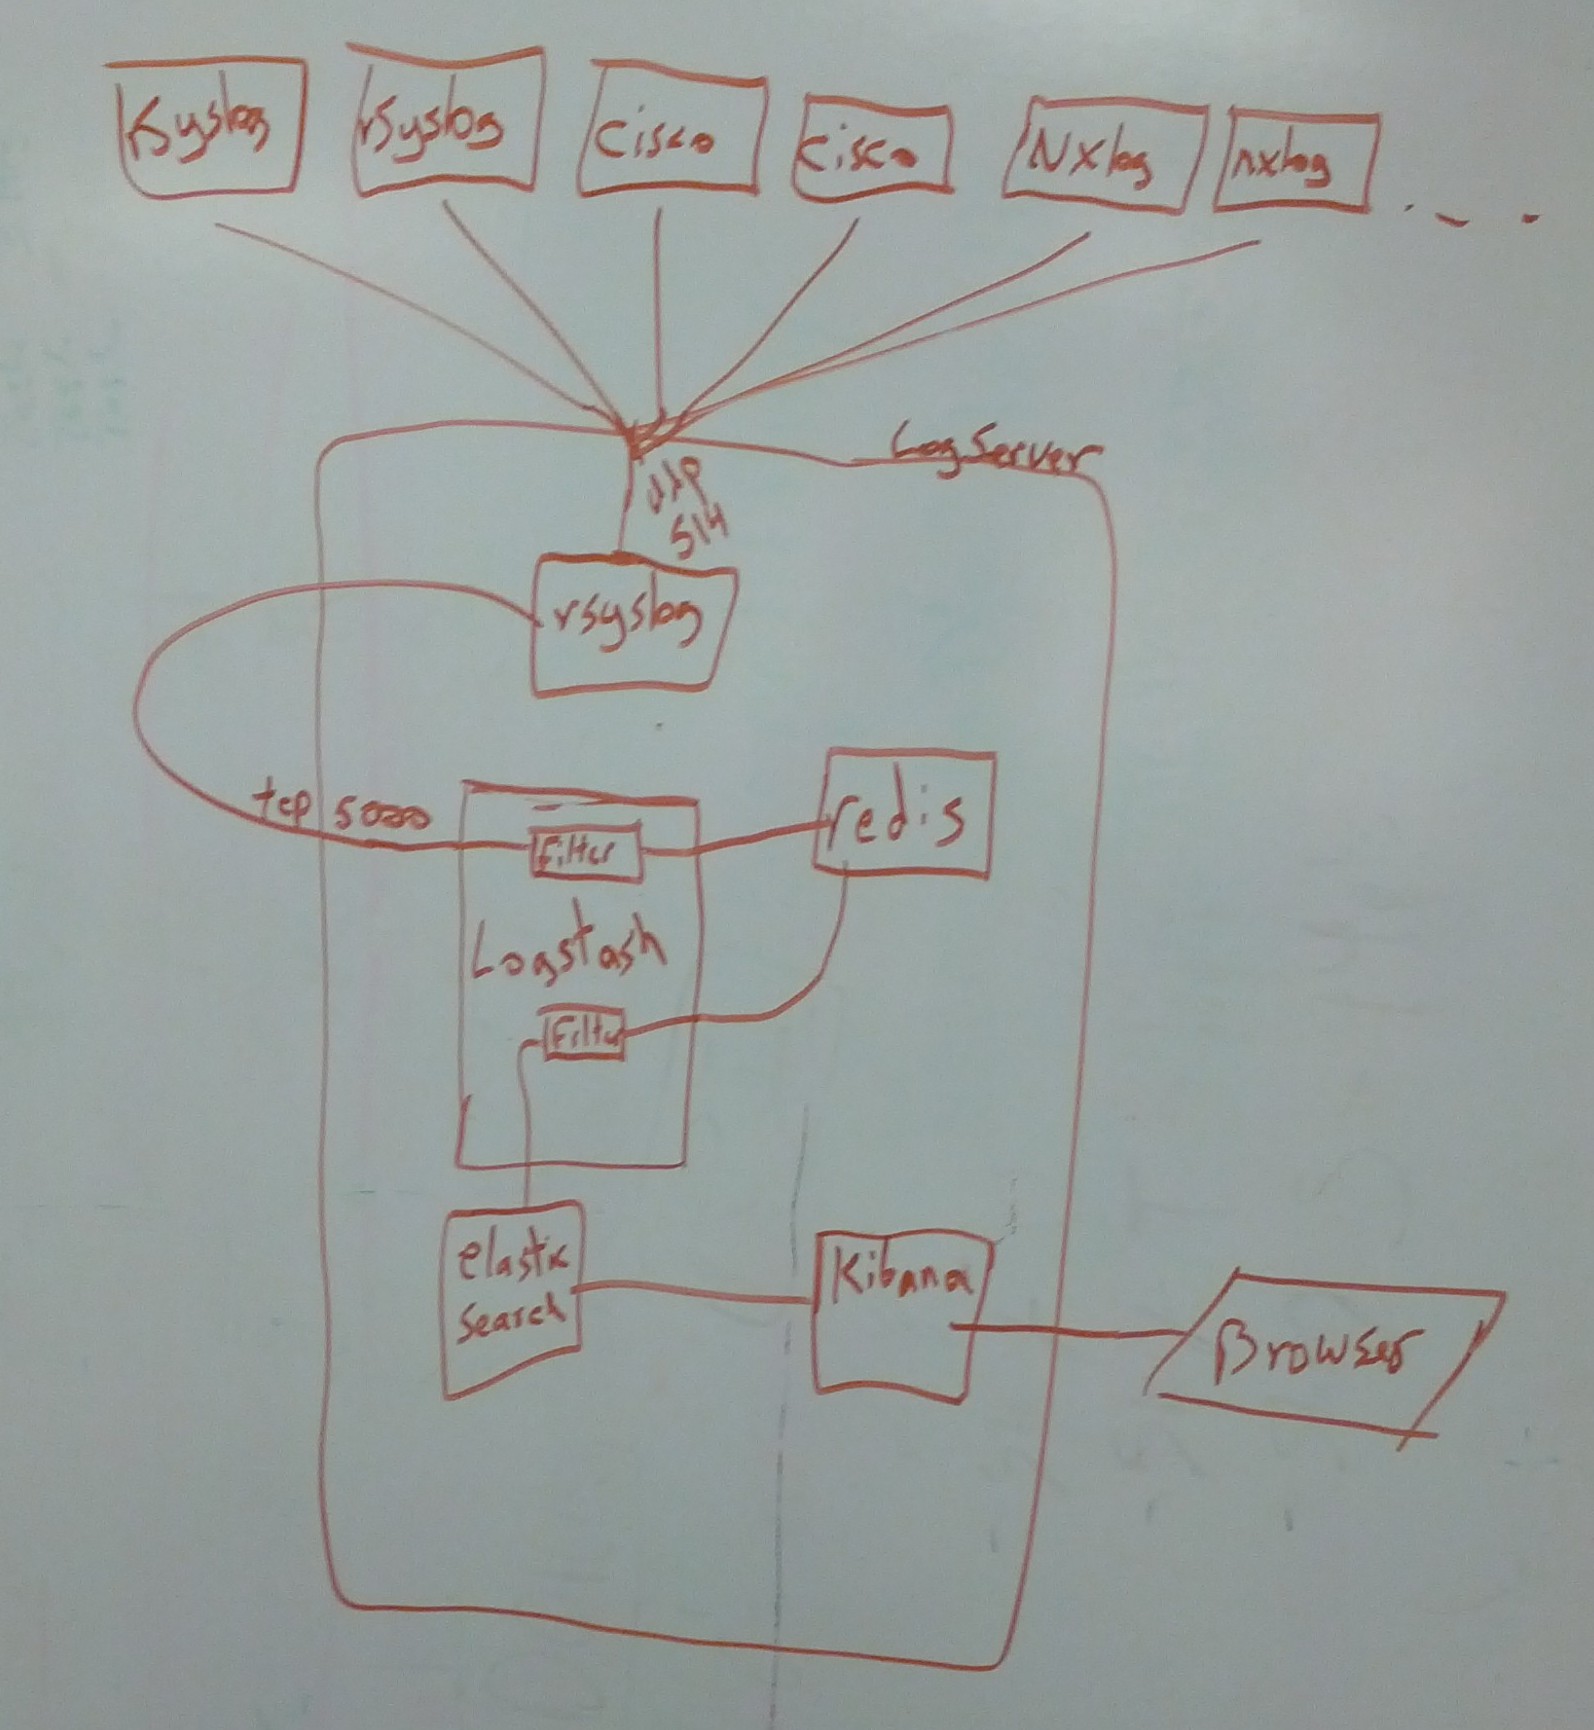 rsyslog
rsyslog
cisco
cisco
NXlog
nxlog
. - .
LogServer
udp
514
rsyslog
tcp 5000
Filter
redis
Logstash
Filter
elastic
search
Kibana
Browser